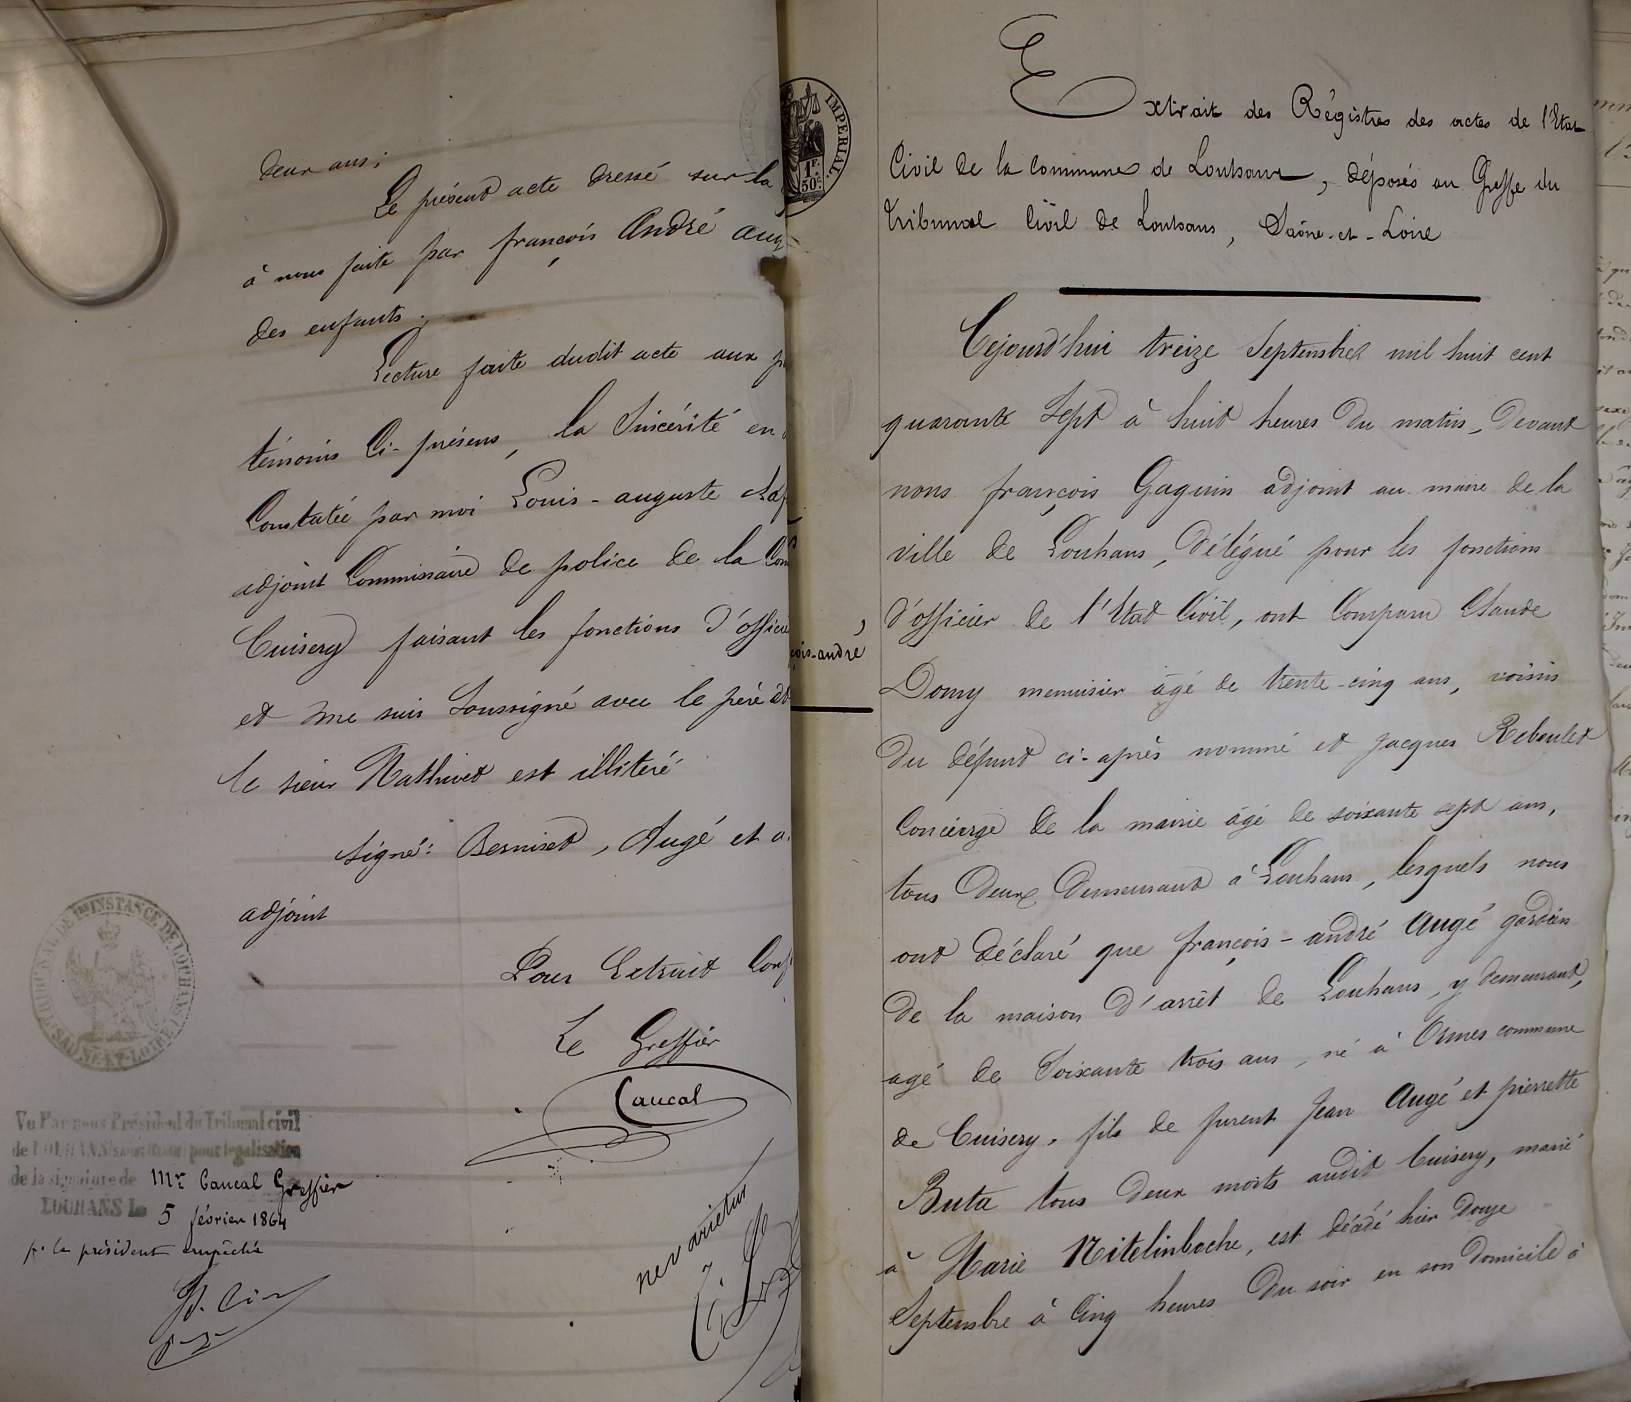 deux ans;
Le présent acte dressé sur la
à nous faite par françois André aug
des enfants.
Lecture faite dudit acte aux p
témoins Ci-présens, la Sincérité en
Constatée par moi Louis-auguste
adjoint Commissaire de police de la Com
Cuisery faisant les fonctions d'officie
et me suis Soussigné avec le père et
le sieur Mathivet est illitéré
Signé: Berniset, Augé et a
adjoint
Pour Extrait Conf
Le Greffier
Caucal
TRIBUNAL DE 1re INSTANCE DE LOUHANS (SAÔNE-ET-LOIRE)
Vu Par nous Président du Tribunal civil
de LOUHANS pour légalisation
de la signature de Mr Caucal Greffier
LOUHANS Le 5 février 1864
pr le président empêché
ne varietur
IMPERIAL
1F.
50c
çois-andré
Extrait des Régistres des actes de l'Etat
Civil de la Commune de Louhans, déposés au Greffe du
Tribunal Civil de Louhans, Saône-et-Loire
Cejourd'hui treize Septembre mil huit cent
quarante Sept à huit heures du matin, Devant
nous françois Gaguin adjoint au maire de la
ville de Louhans, Délégué pour les fonctions
d'officier de l'Etat Civil, ont Comparu Claude
Domy menuisier âgé de trente-cinq ans, voisin
du défunt ci-après nommé et Jacques Reboulet
Concierge de la mairie âgé de soixante sept ans,
tous Deux Demeurant à Louhans, lesquels nous
ont déclaré que françois-andré Augé gardien
de la maison d'arrêt de Louhans, y demeurant,
agé de Soixante trois ans, né à Ormes commune
de Cuisery, fils de furent Jean Augé et pierrette
Buta tous deux morts audit Cuisery, marié
à Marie Nitelinbache, est décédé hier Douze
Septembre à Cinq heures Du soir en son Domicile à